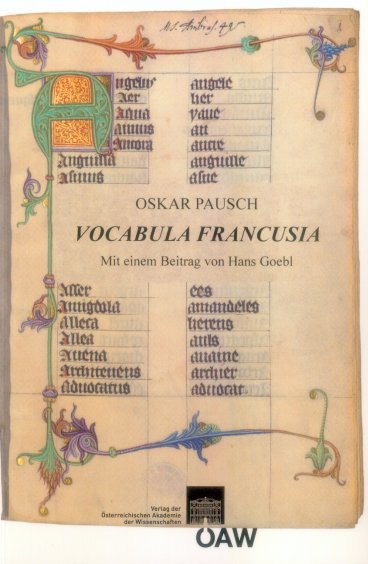 Ms. Ambras. 42
Angelus angele
Aer lier
Aqua yaue
Annus an
Ancora ancre
Anguilla anguille
Asinus asne
OSKAR PAUSCH
VOCABULA FRANCUSIA
Mit einem Beitrag von Hans Goebl
Asser ees
Amigdola amandeles
Alleca herens
Allea auls
Auena auaine
Architenens archier
Aduocatus aduocat
Verlag der
Österreichischen Akademie
der Wissenschaften
ÖAW